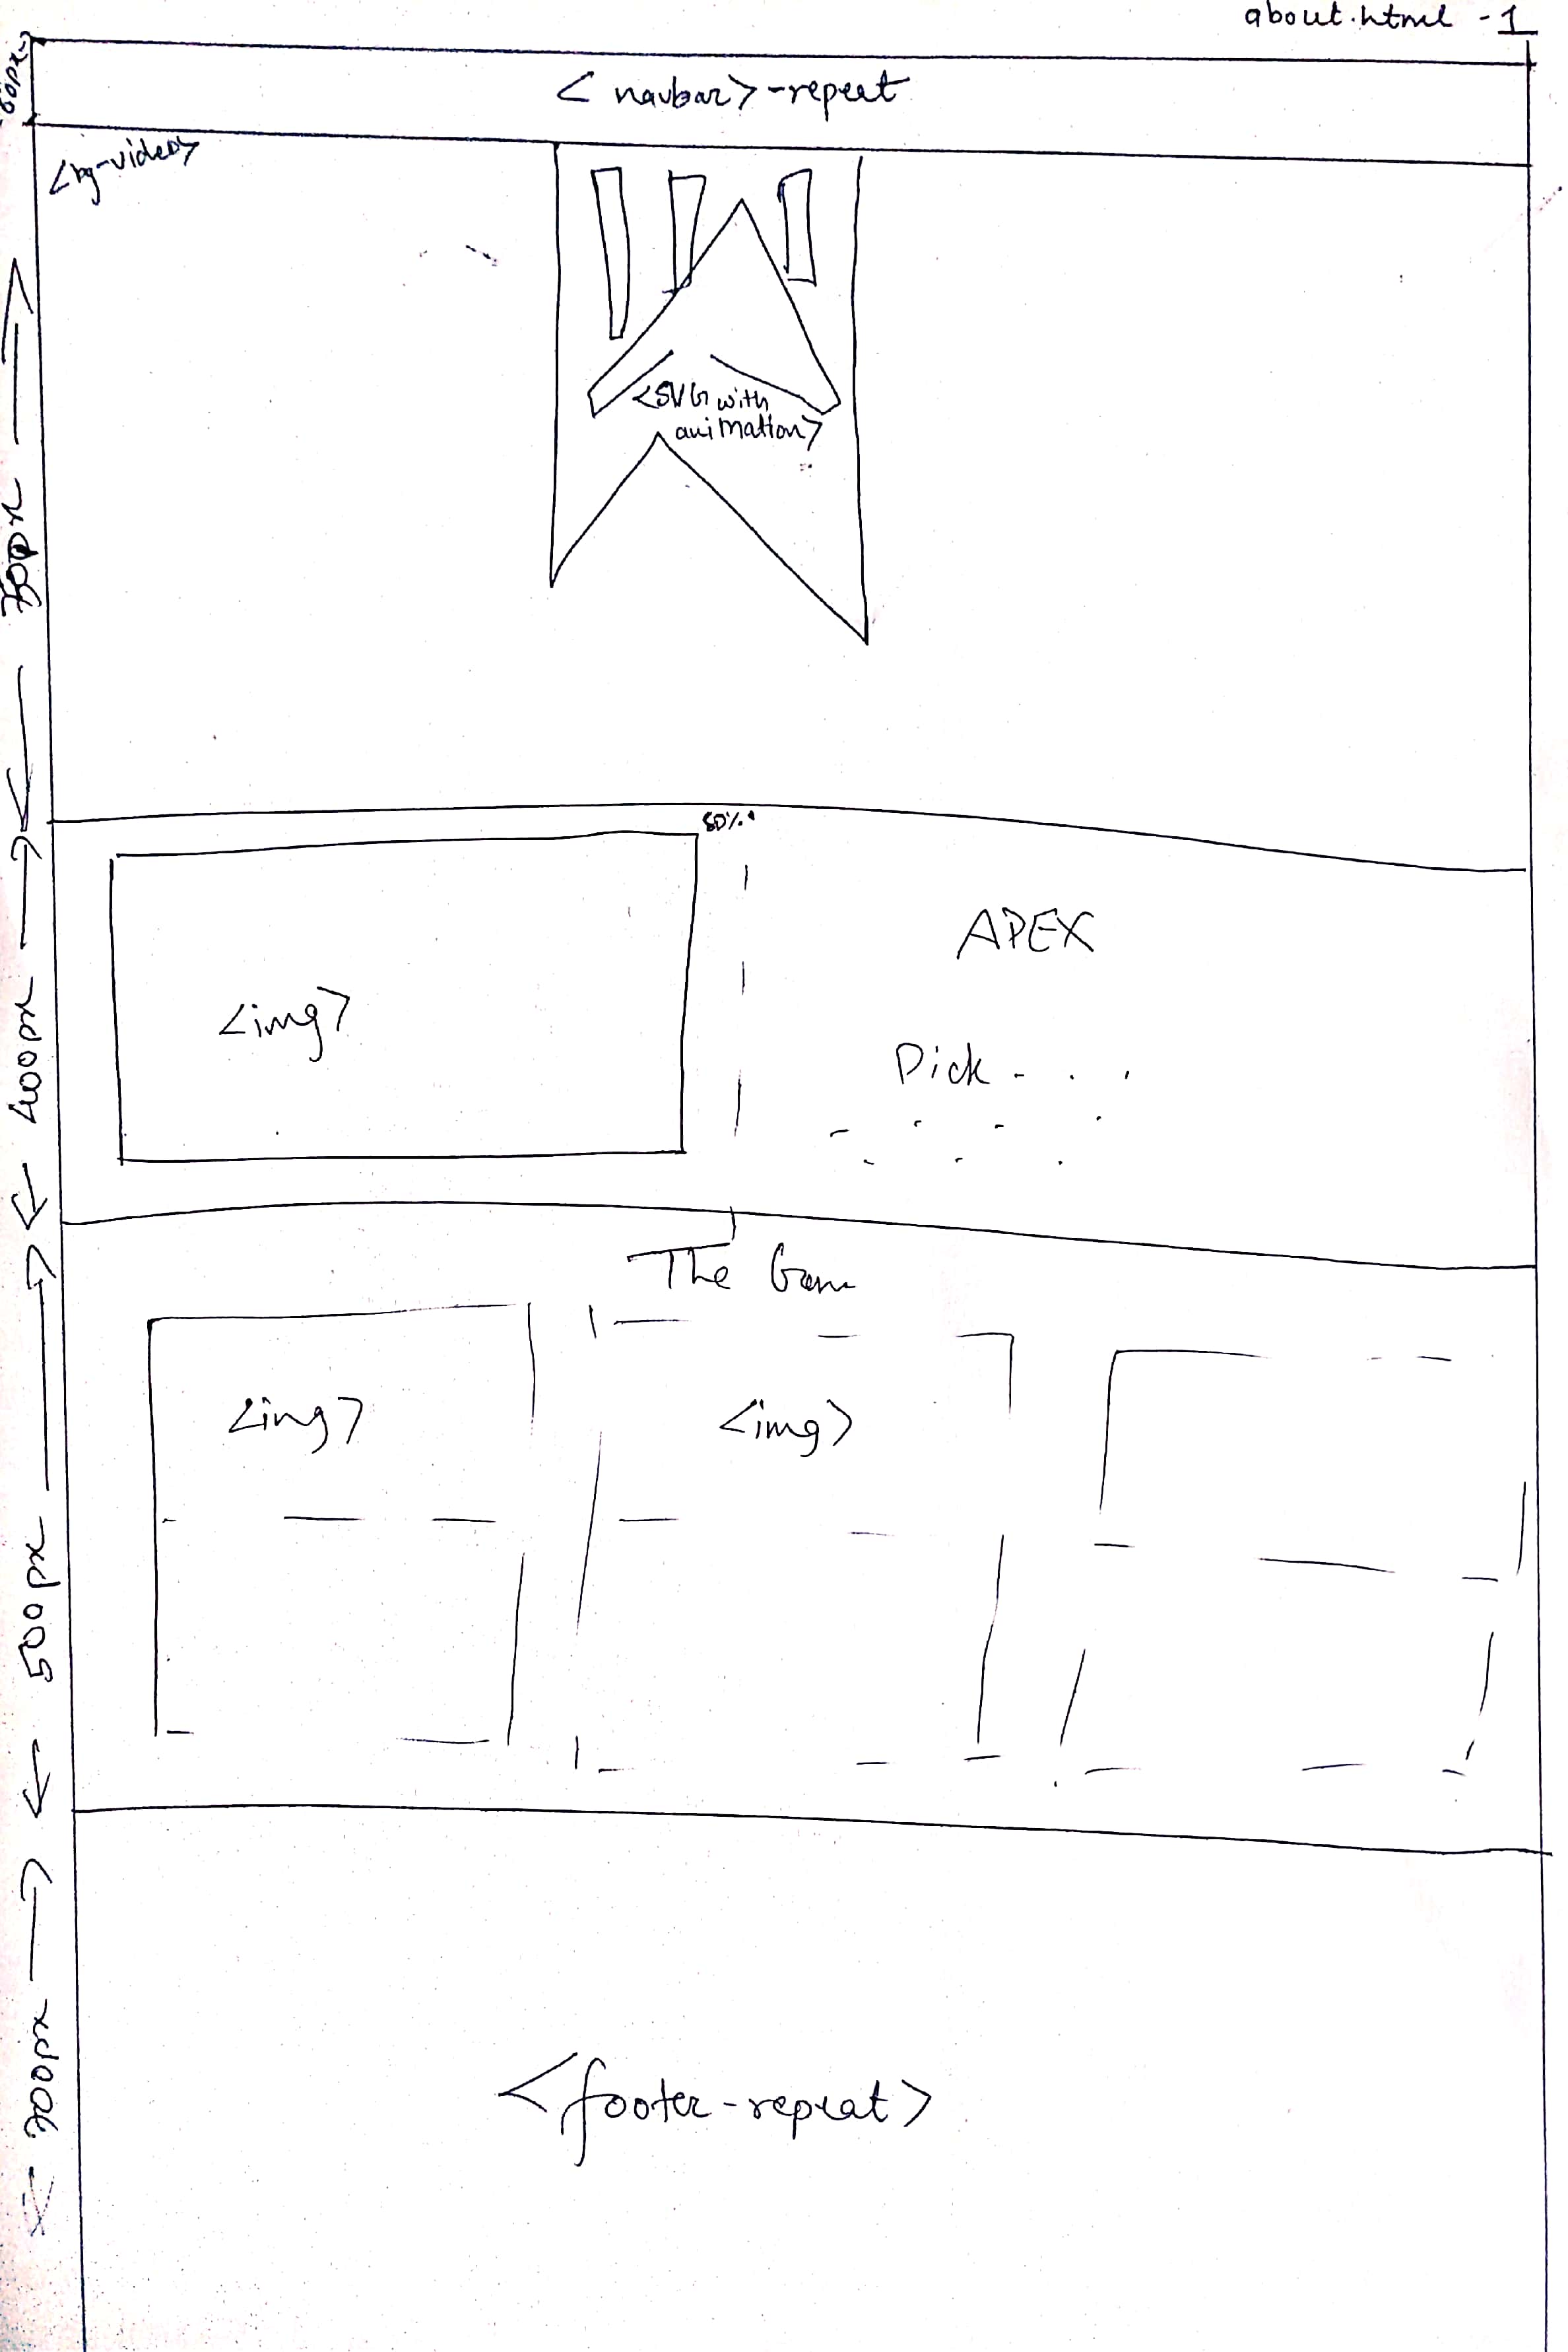 about.html - 1
60px
<navbar> - repeat
<bg-video>
<SVG with
animation>
50%
<img>
APEX
Dick - . .
400px
The Gam
<img>
<img>
500px
<footer-repeat>